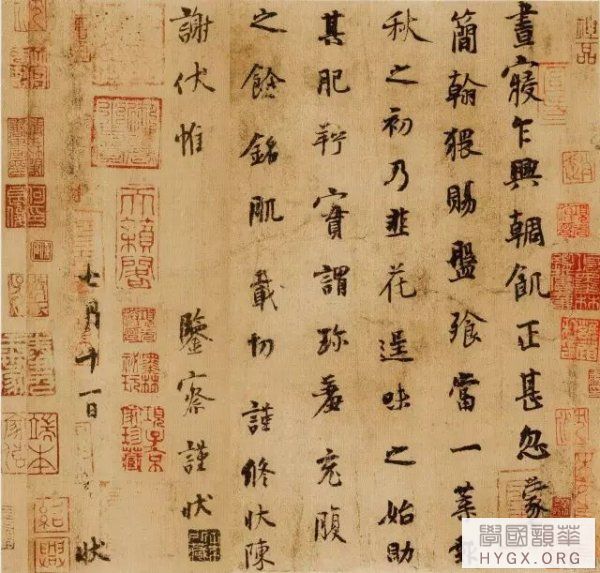 神品
晝寢乍興輖飢正甚忽蒙
簡翰猥賜盤飧當一葉報
秋之初乃韭花逞味之始助
其肥羜實謂珍羞充腹
之餘銘肌載切謹修狀陳
謝伏惟 鑒察謹狀
七月十一日 狀
天籟閣
項子京家珍藏
紹興
學國韻華
HYGX.ORG